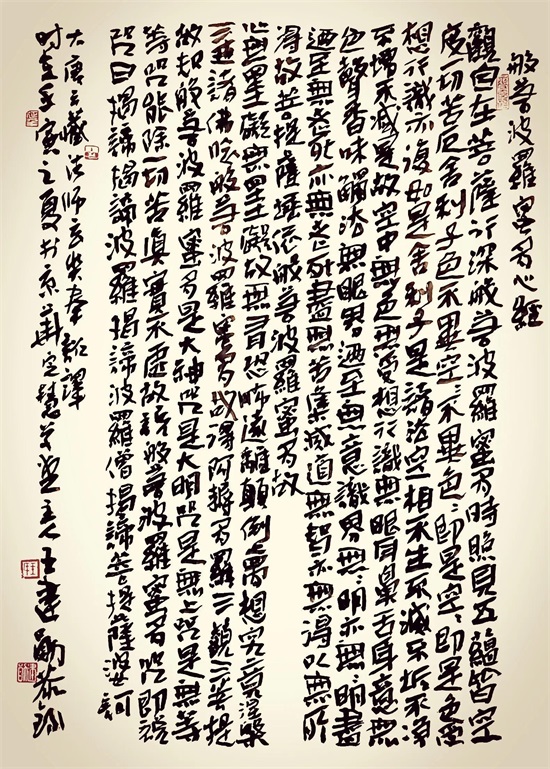 般若波羅蜜多心經
觀自在菩薩行深般若波羅蜜多時照見五蘊皆空
度一切苦厄舍利子色不異空、不異色、即是空、即是色受
想行識亦復如是舍利子是諸法空相不生不滅不垢不淨
不增不減是故空中無色無受想行識無眼耳鼻舌身意無
色聲香味觸法無眼界迺至無意識界無、明亦無、明盡
迺至無老死亦無老死盡無苦集滅道無智亦無得以無所
得故菩提薩埵依般若波羅蜜多故
心無罣礙無罣礙故無有恐怖遠離顛倒夢想究竟涅槃
三世諸佛依般若波羅蜜多故得阿耨多羅三藐三菩提
故知般若波羅蜜多是大神咒是大明咒是無上咒是無等
等咒能除一切苦真實不虛故說般若波羅蜜多咒即說
咒曰揭諦揭諦波羅揭諦波羅僧揭諦菩提薩婆訶
大唐三藏法師玄奘奉詔譯
时在壬寅之夏於京華定慧草堂主人王建勛恭録